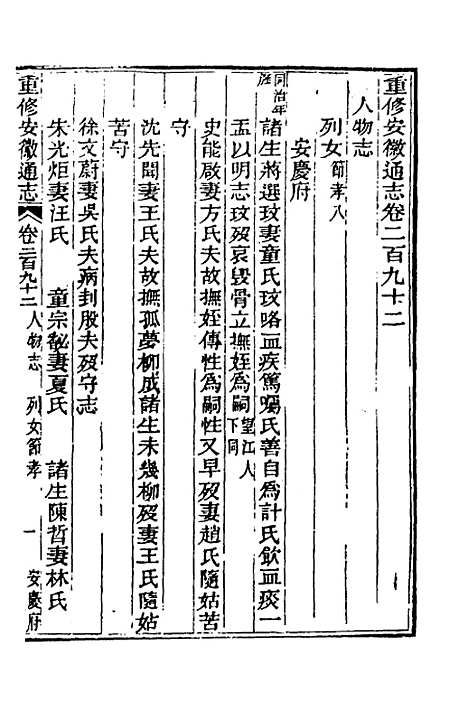 重修安徽通志卷二百九十二
人物志
列女節孝八
安慶府
同治年
旌
諸生蔣選玟妻童氏玟咯血疾篤囑氏善自爲計氏飮血痰一
盂以明志玟歿哀毀骨立撫姪爲嗣望江人
下同
史能啟妻方氏夫故撫姪傳性爲嗣性又早歿妻趙氏隨姑苦
守
沈先閶妻王氏夫故撫孤夢柳成諸生未幾柳歿妻王氏隨姑
苦守
徐文蔚妻吳氏夫病刲股夫歿守志
朱光炬妻汪氏 童宗 妻夏氏 諸生陳哲妻林氏
重修安徽通志 卷二百九十二 人物志 列女節孝 一 安慶府